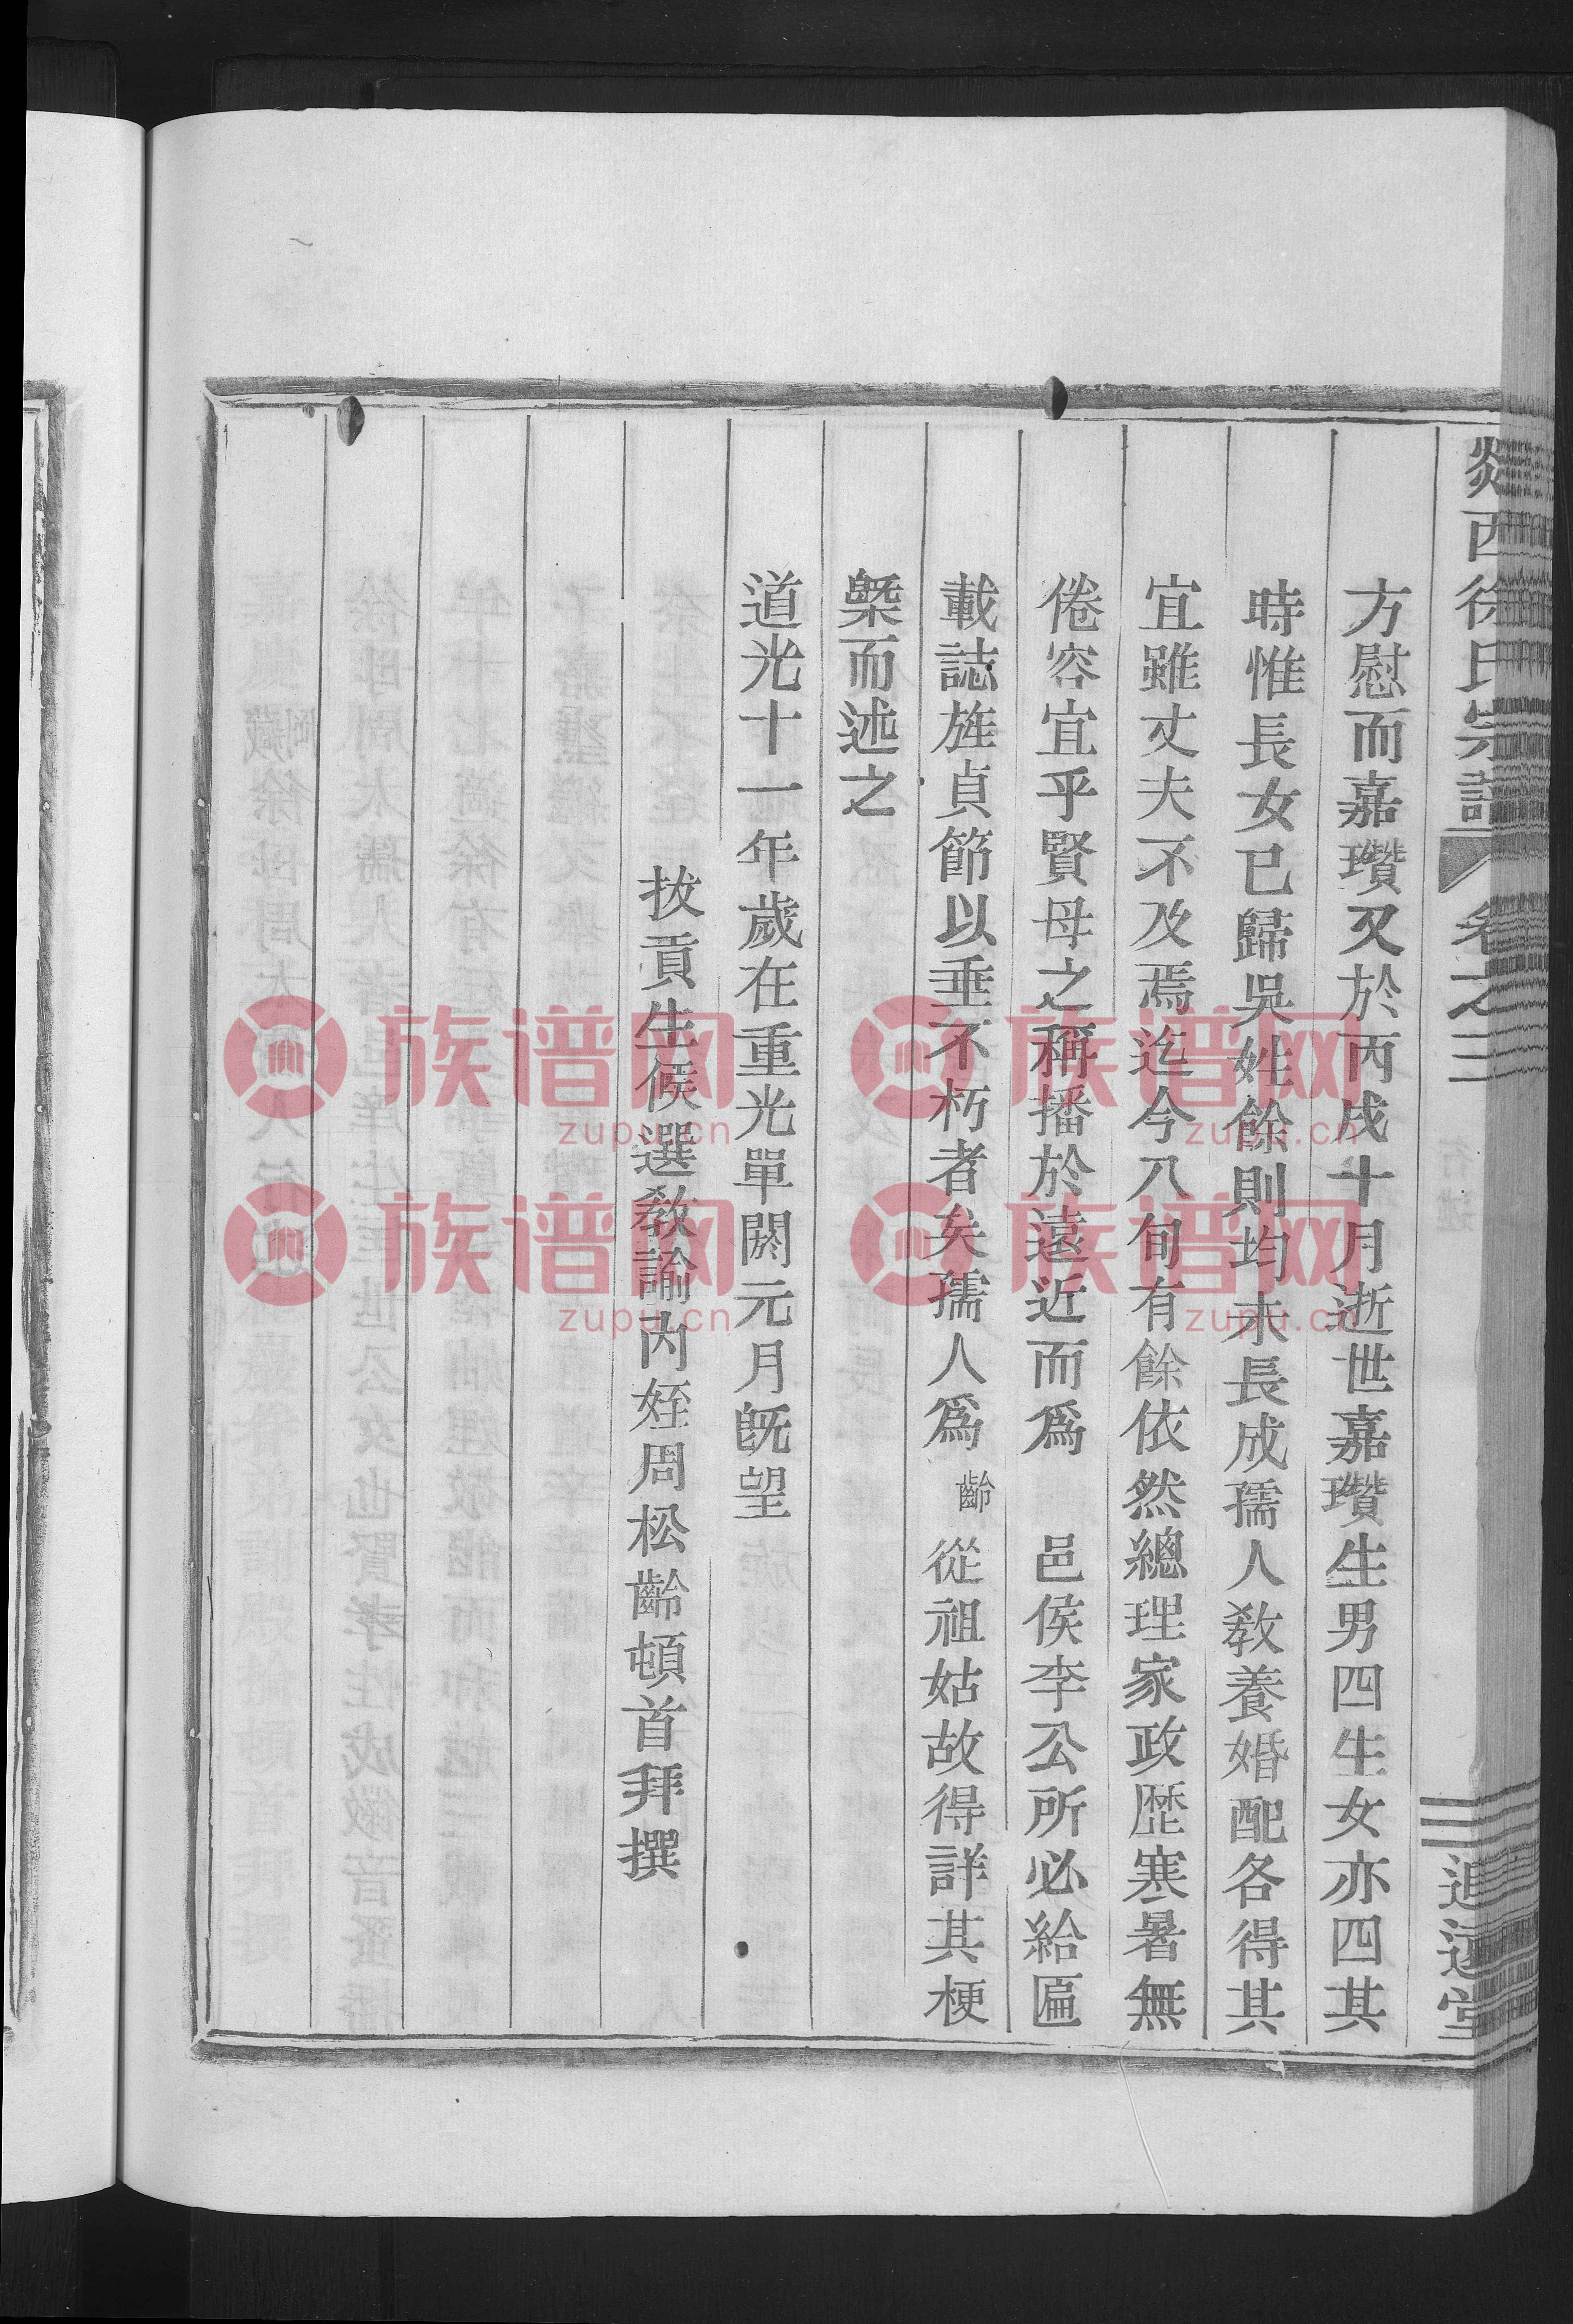 炎西徐氏宗譜 卷之三 追遠堂
方慰而嘉瓚又於丙戌十月逝世嘉瓚生男四生女亦四其
時惟長女已歸吳姓餘則均未長成孺人敎養婚配各得其
宜雖丈夫不及焉迄今八旬有餘依然總理家政歷寒暑無
倦容宜乎賢母之稱播於遠近而爲 邑侯李公所必給匾
載誌旌貞節以垂不朽者矣孺人爲 齡 從祖姑故得詳其梗
槩而述之
道光十一年歲在重光單閼元月旣望
拔貢生候選敎諭內姪周松齡頓首拜撰
族谱网 族谱网
zupu.cn zupu.cn
族谱网 族谱网
zupu.cn zupu.cn